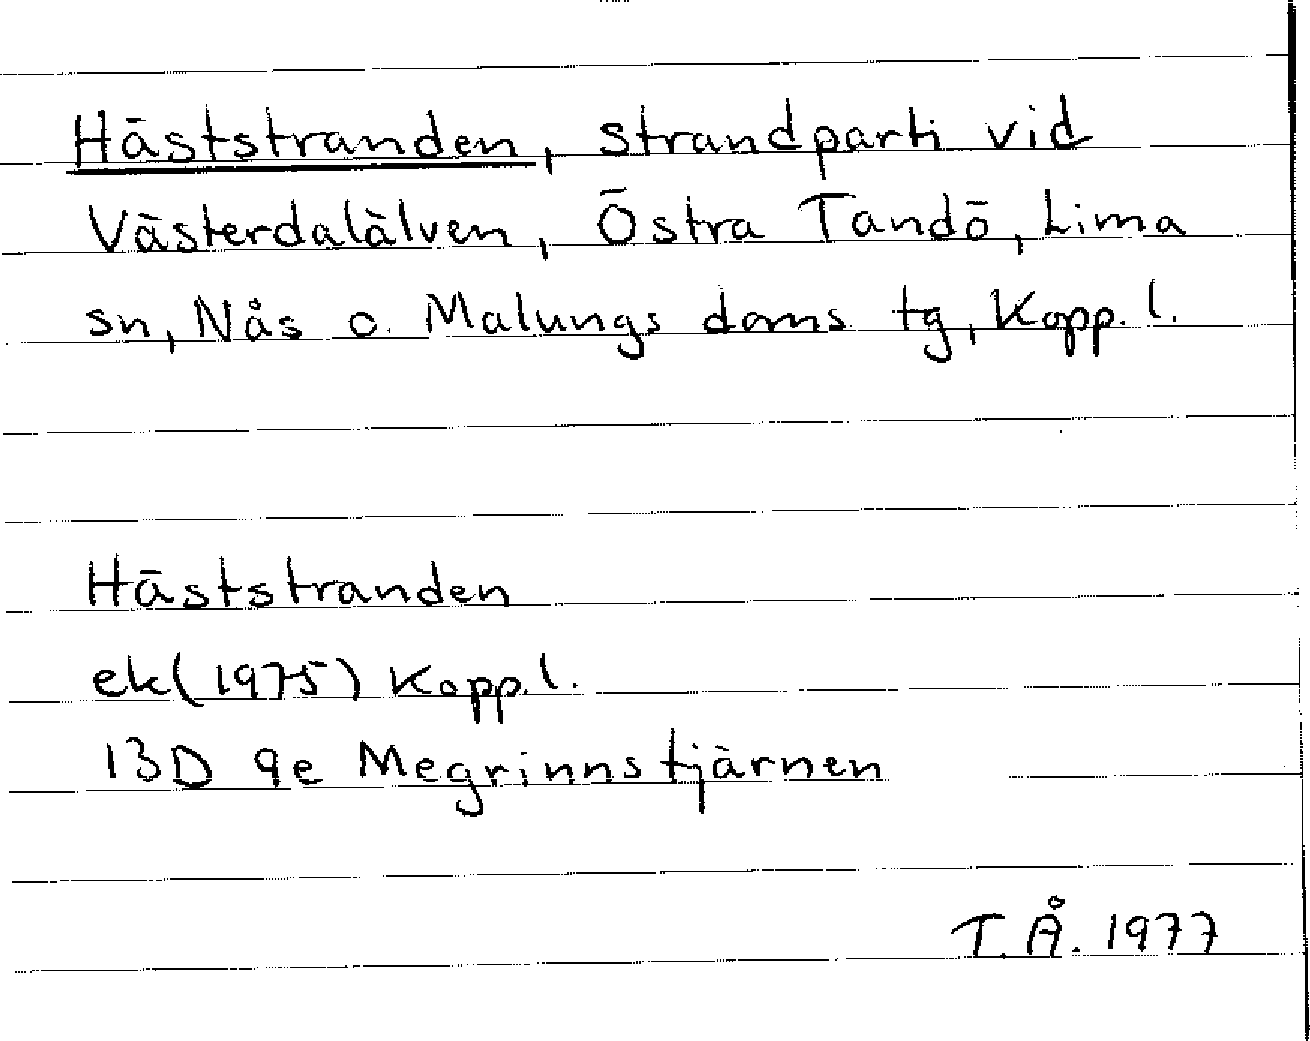 Häststranden, strandparti vid
Västerdalälven, Östra Tandö, Lima
sn, Nås o. Malungs doms tg, Kopp. l.
Häststranden
ek(1975) Kopp. l.
13D 9e Megrinnstjärnen
T. Å. 1977